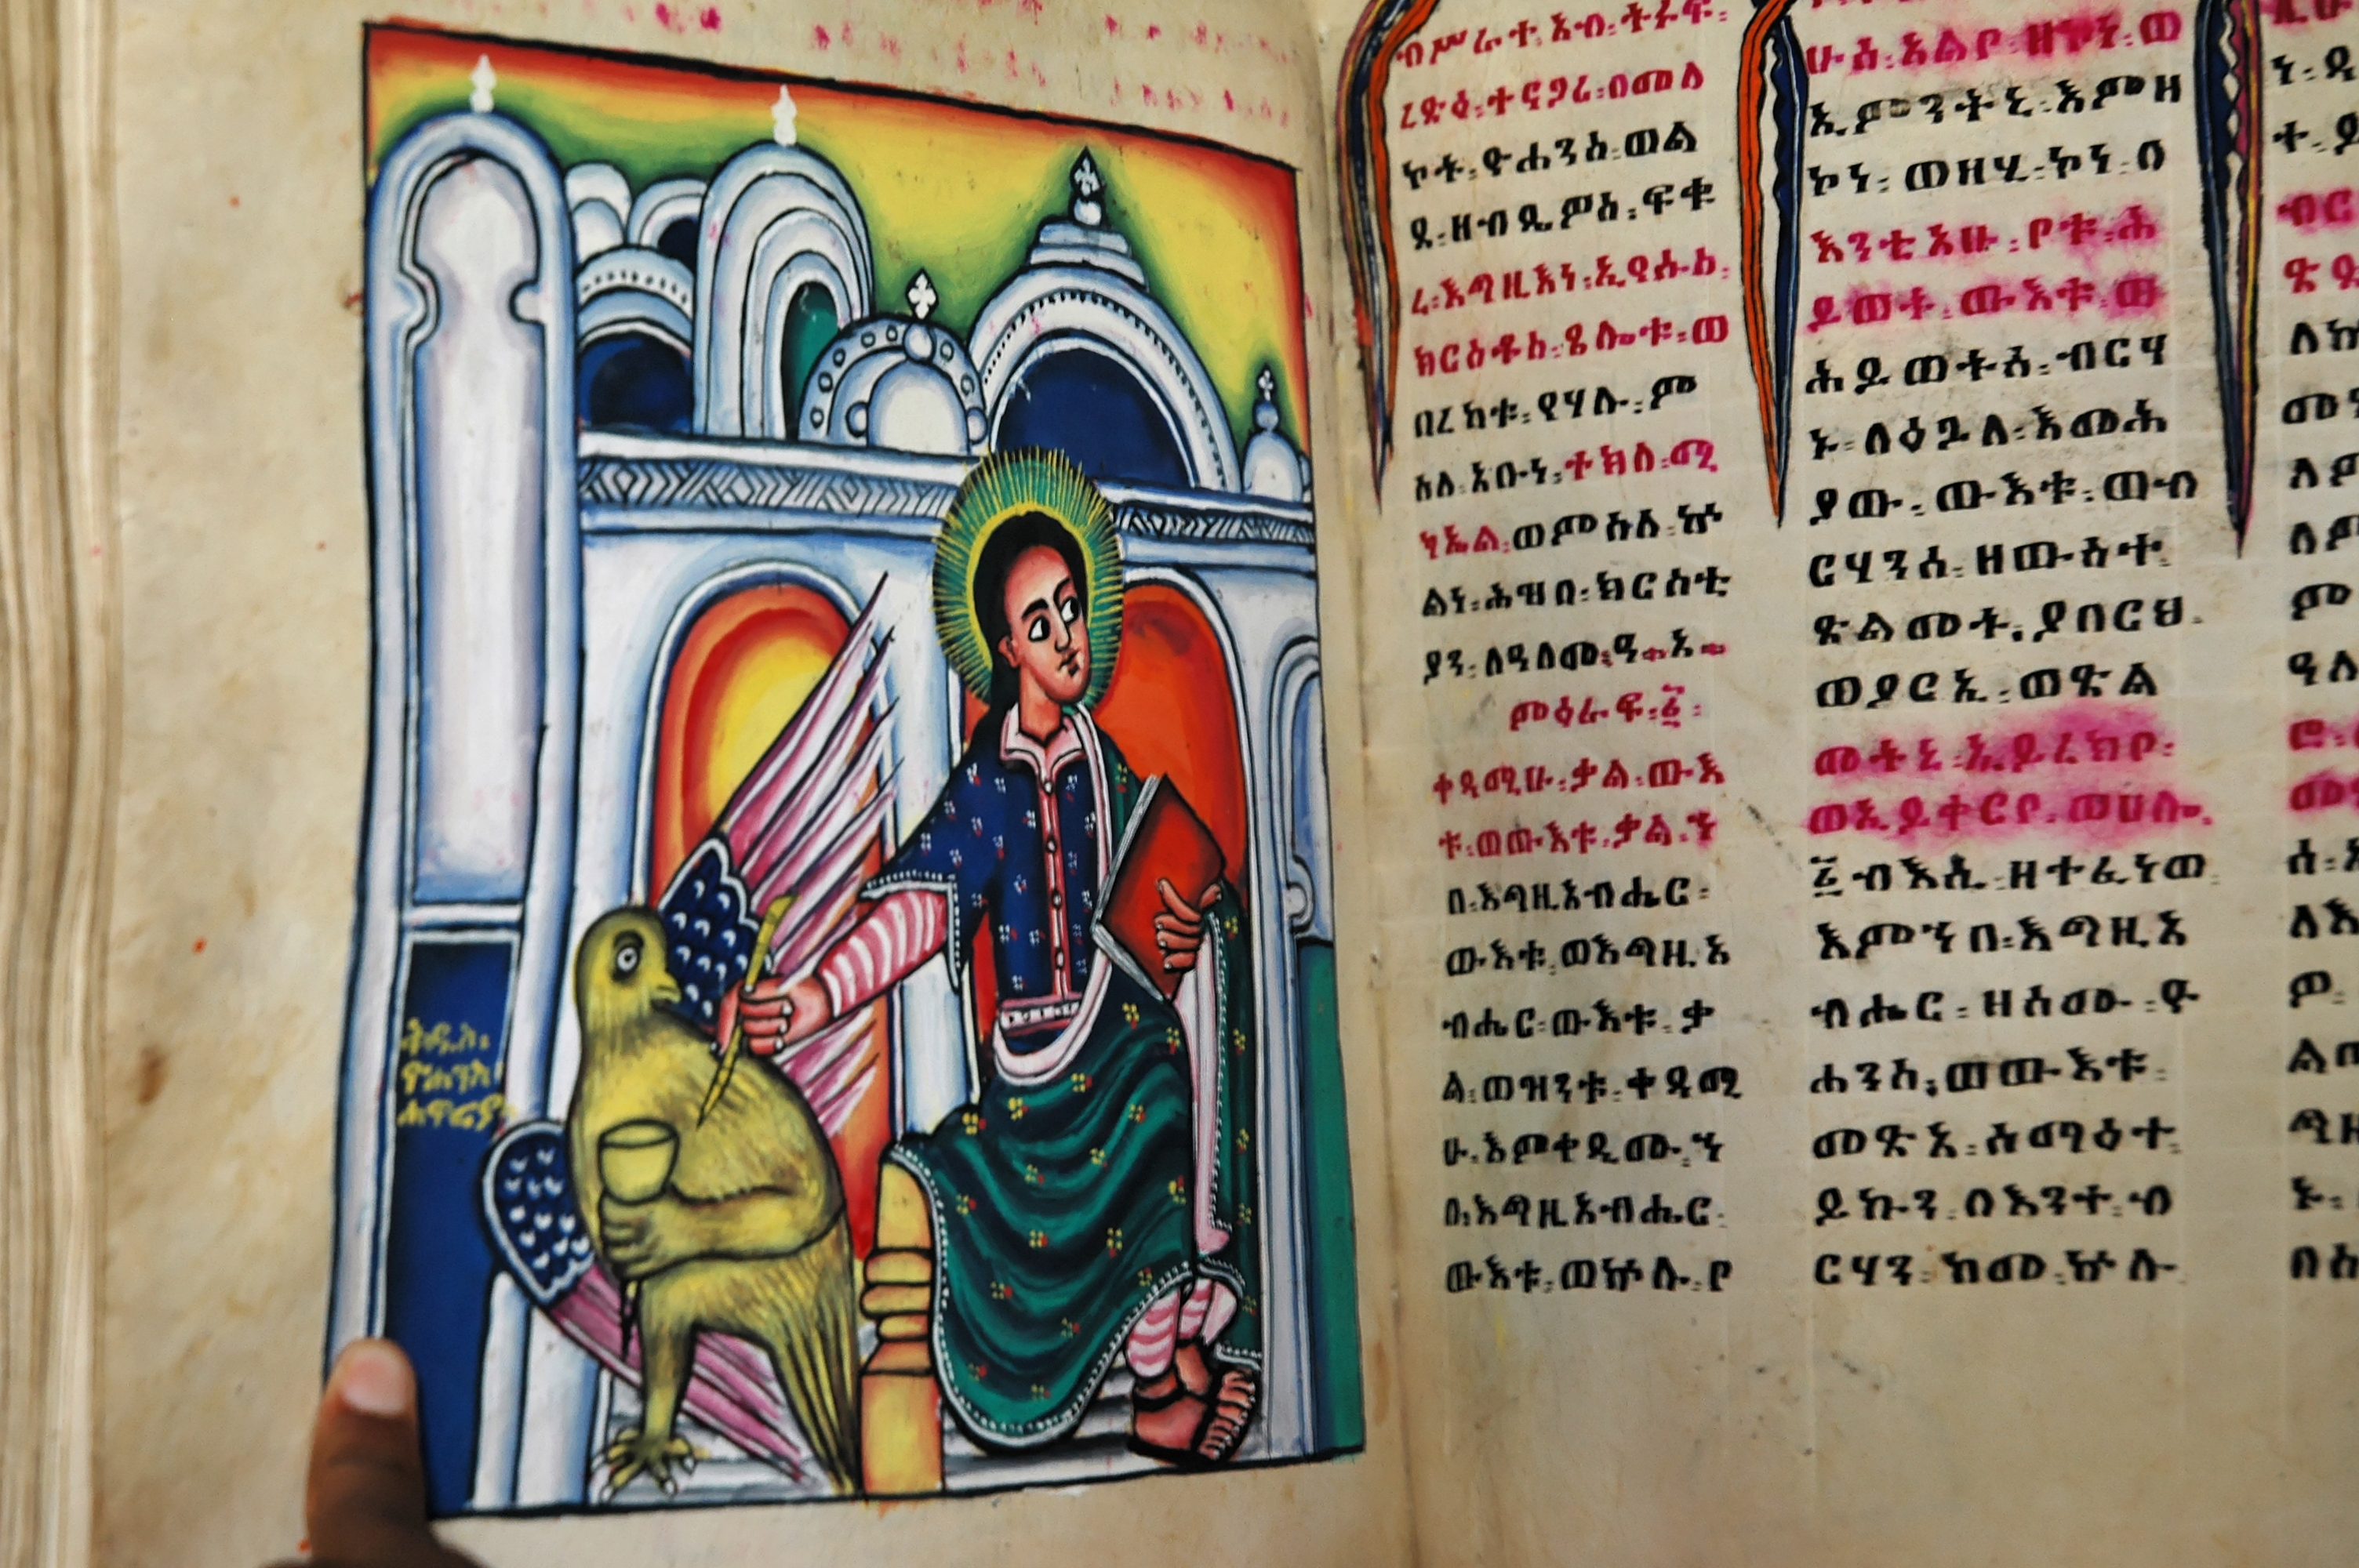 ቅዱስ፡
ዮሐንስ፡
ሐዋርያ
ብሥራተ፡ አብ፡
ረድዕ፡ ተናጋሪ፡ በመለ
ኮቱ፡ ዮሐንስ፡ ወል
ደ፡ ዘብዴዎስ፡ ፍቁ
ረ፡ እግዚእነ፡ ኢየሱስ፡
ክርስቶስ፡ ጸሎቱ፡ ወ
በረከቱ፡ የሃሉ፡ ም
ስለ፡ አቡነ፡ ተክለ፡ ሚ
ካኤል፡ ወምስለ፡ ኵ
ልነ፡ ሕዝበ፡ ክርስቲ
ያን፡ ለዓለመ፡ ዓ፡ አ፡
ምዕራፍ፡ ፩፡
ቀዳሚሁ፡ ቃል፡ ውእ
ቱ፡ ወውእቱ፡ ቃል፡ ኀ
በ፡ እግዚአብሔር፡
ውእቱ፡ ወእግዚአ
ብሔር፡ ውእቱ፡ ቃ
ል፡ ወዝንቱ፡ ቀዳሚ
ሁ፡ እምቀዲሙ፡ ኀ
በ፡ እግዚአብሔር፡
ውእቱ፡ ወኵሉ፡ ቦ
ሁሰ፡ አልቦ፡ ዘኮነ፡ ወ
ኢምንትኒ፡ እምዘ
ኮነ፡ ወዘሂ፡ ኮነ፡ በ
እንቲአሁ፡ ቦቱ፡ ሕ
ይወት፡ ውእቱ፡ ወ
ሕይወትሰ፡ ብርሃ
ኑ፡ ለዕጓለ፡ እመሕ
ያው፡ ውእቱ፡ ወብ
ርሃንሰ፡ ዘውስተ፡
ጽልመት፡ ያበርህ፡
ወያርኢ፡ ወጽል
መትኒ፡ ኢይረክቦ፡
ወኢይቀርቦ፡ ወሀሎ፡
፩ብእሲ፡ ዘተፈነወ፡
እምኀበ፡ እግዚአ
ብሔር፡ ዘስሙ፡ ዮ
ሐንስ፡ ወውእቱ፡
መጽአ፡ ሰማዕተ፡
ይኩን፡ በእንተ፡ ብ
ርሃን፡ ከመ፡ ኵሉ፡